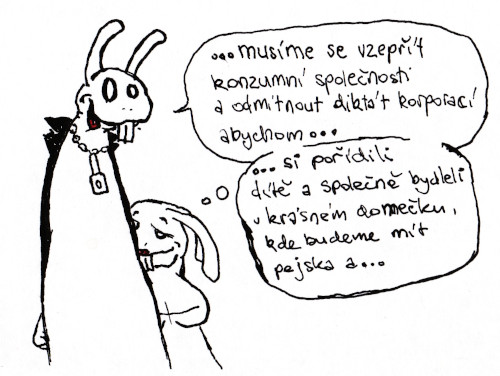 ...musíme se vzepřít
konzumní společnosti
a odmítnout diktát korporací
abychom...
... si pořídili
dítě a společně bydleli
v krásném domečku,
kde budeme mít
pejska a...